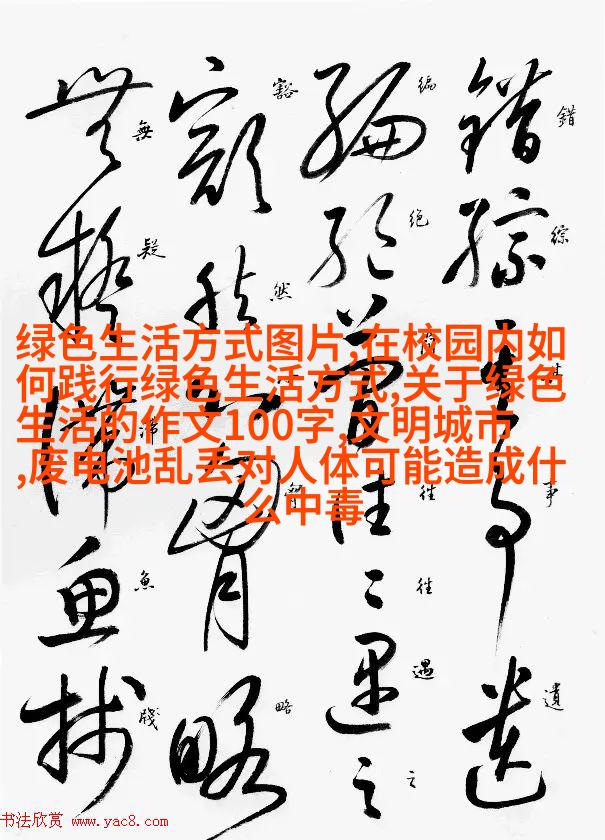 錯綜其事遺
編绝簡往往遇之
豁然心胸略
無疑滯魚牋
绿色生活方式图片,在校园内如
何践行绿色生活方式,关于绿色
生活的作文100字,文明城市
,废电池乱丢对人体可能造成什
么中毒
书法欣赏 www.yac8.com